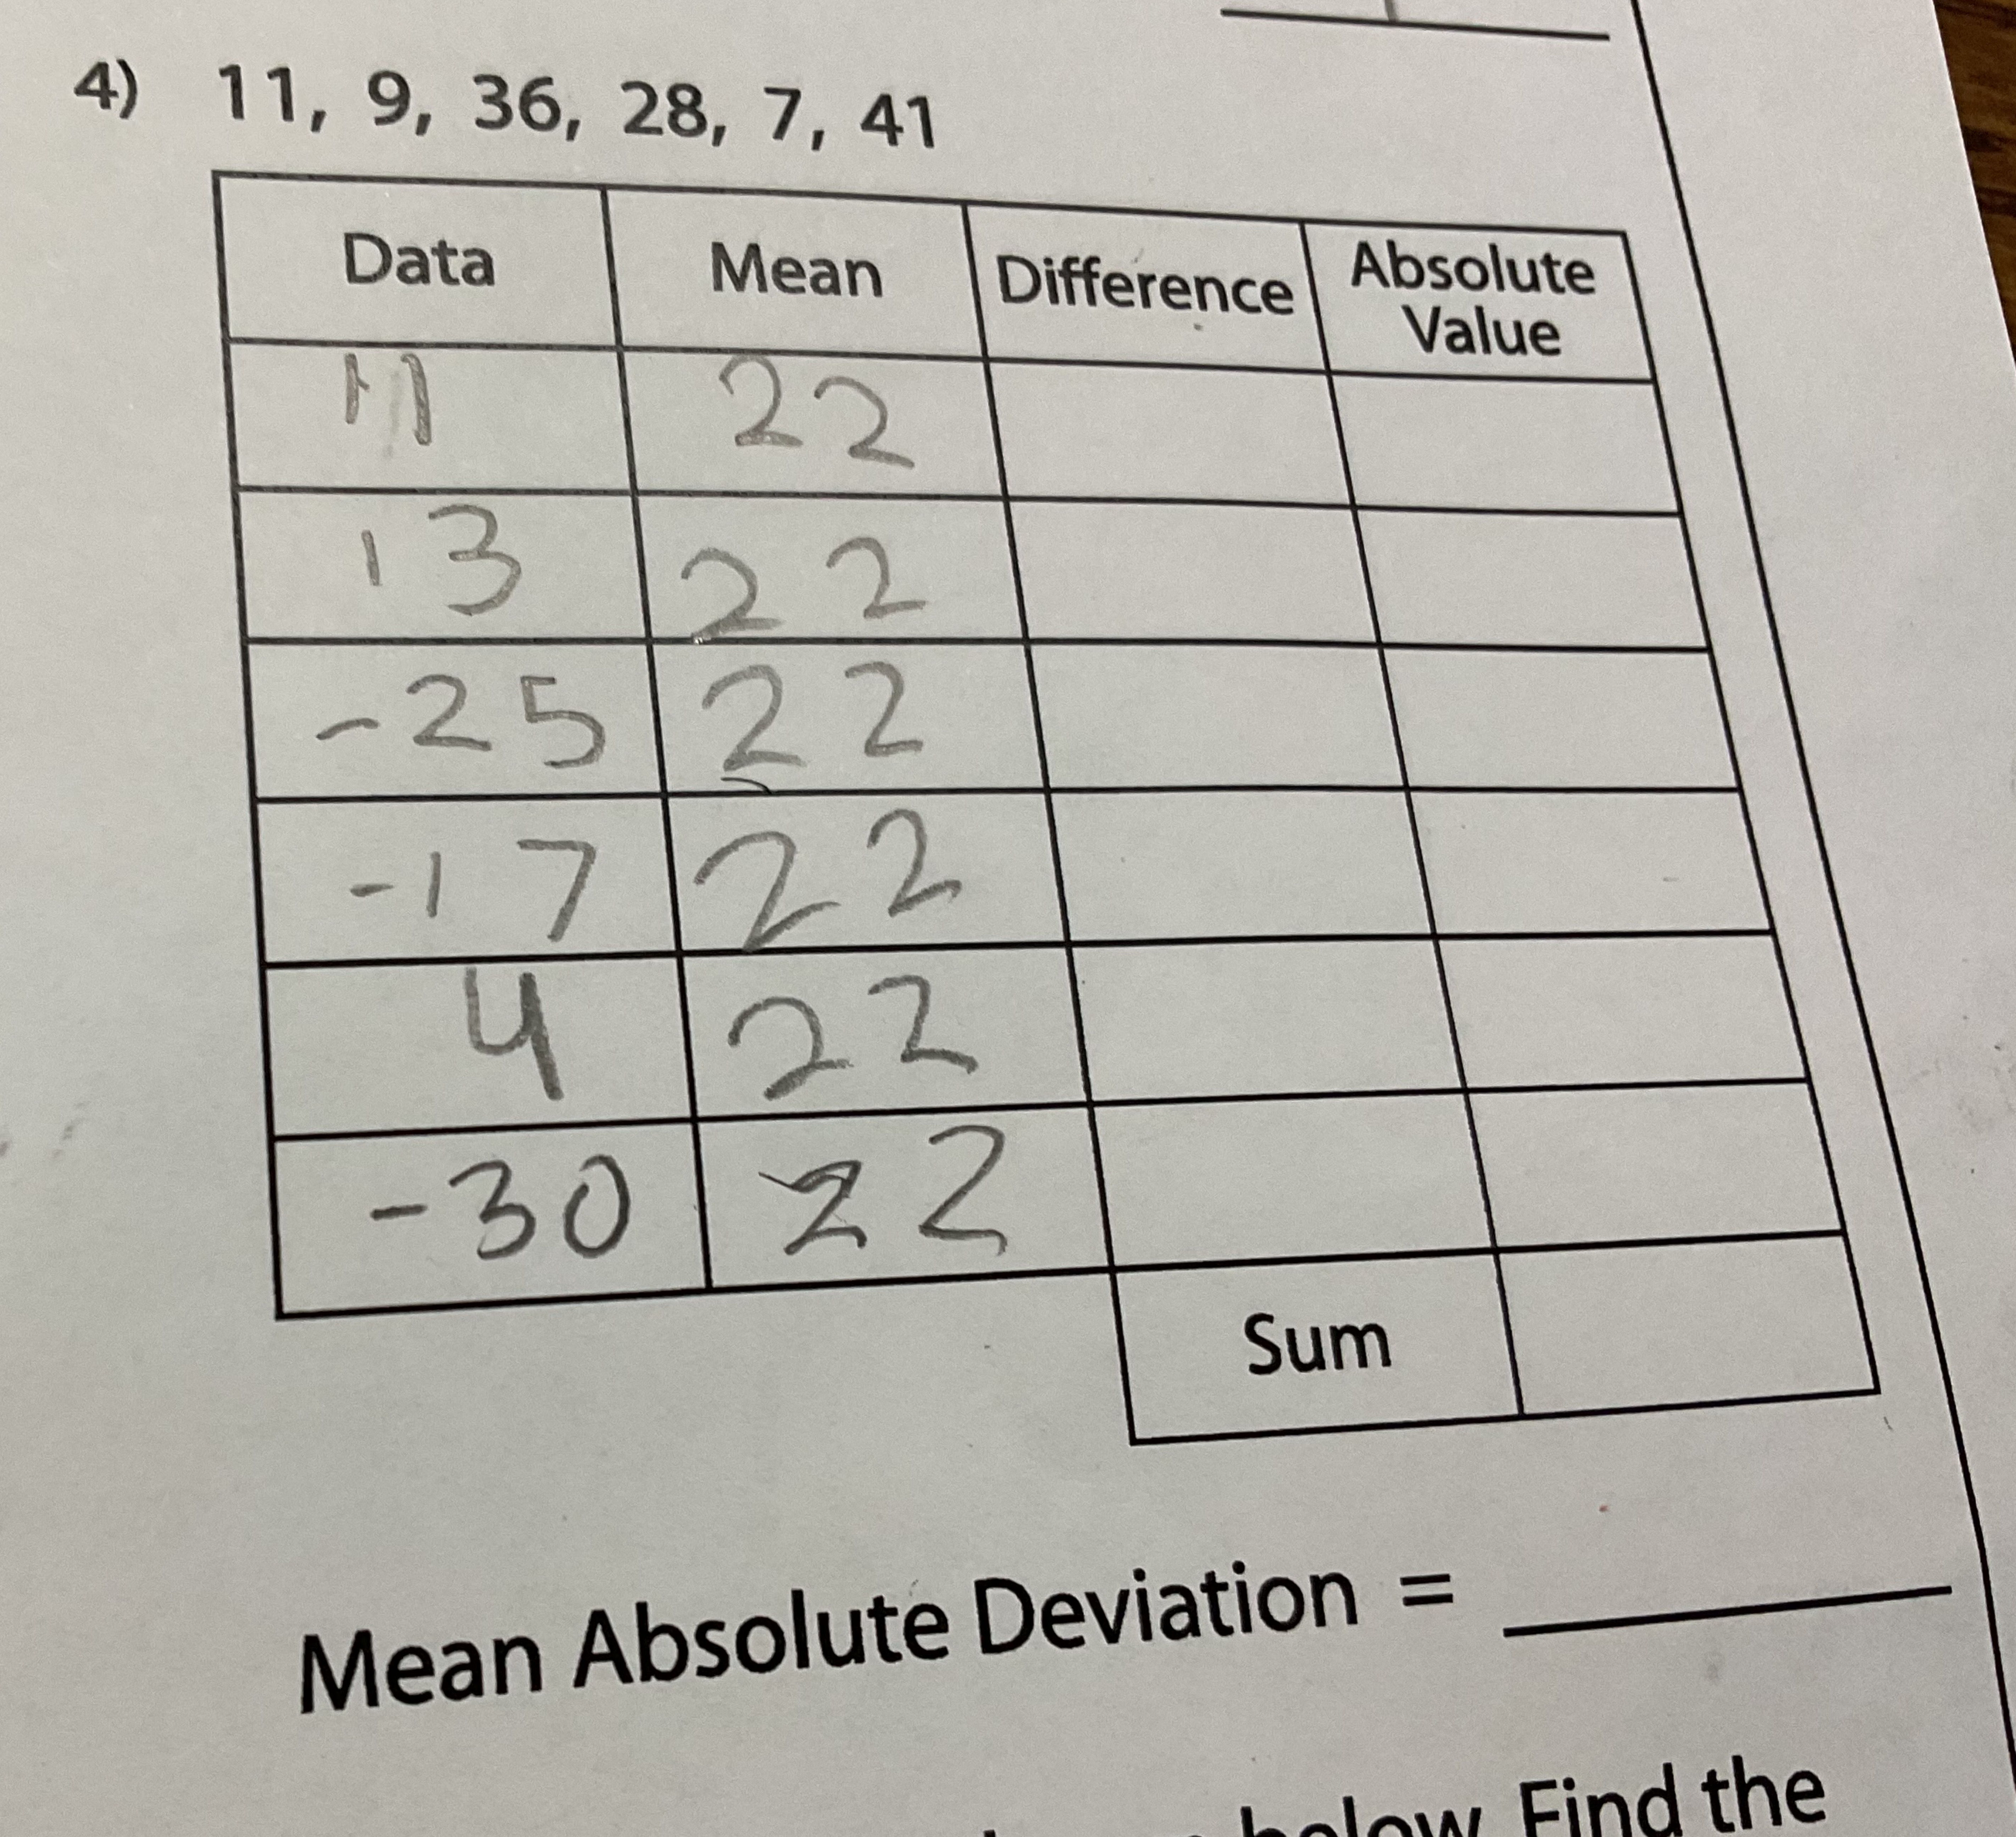 4) 11, 9, 36, 28, 7, 41
Data Mean Difference Absolute Value
11 22
13 22
-25 22
-17 22
4 22
-30 22
Sum
Mean Absolute Deviation =
below. Find the